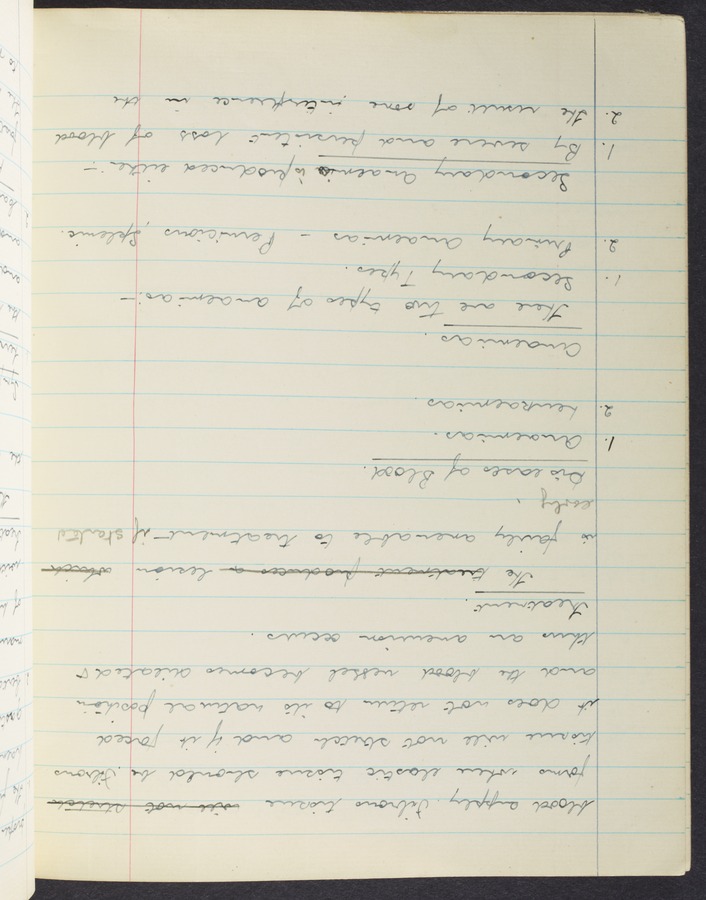 blood supply. Fibrous tissue will not stretch
forms when elastic tissue should be. Fibrous
tissue will not stretch and if it forced
it does not return to it's natural position
and the blood vessel becomes dilated &
thus an aneurism occurs.
Treatment.
The treatment produces a lesion which
is fairly amenable to treatment if started
early.
Diseases of Blood.
1. Anaemias.
2. Leukaemias.
Anaemias.
There are two types of anaemias:-
1. Secondary Types.
2. Primary Anaemias - Pernicious, Splenic.
Secondary Anaemia is produced either:-
1. By severe and persistent loss of blood
2. The result of some interference in the